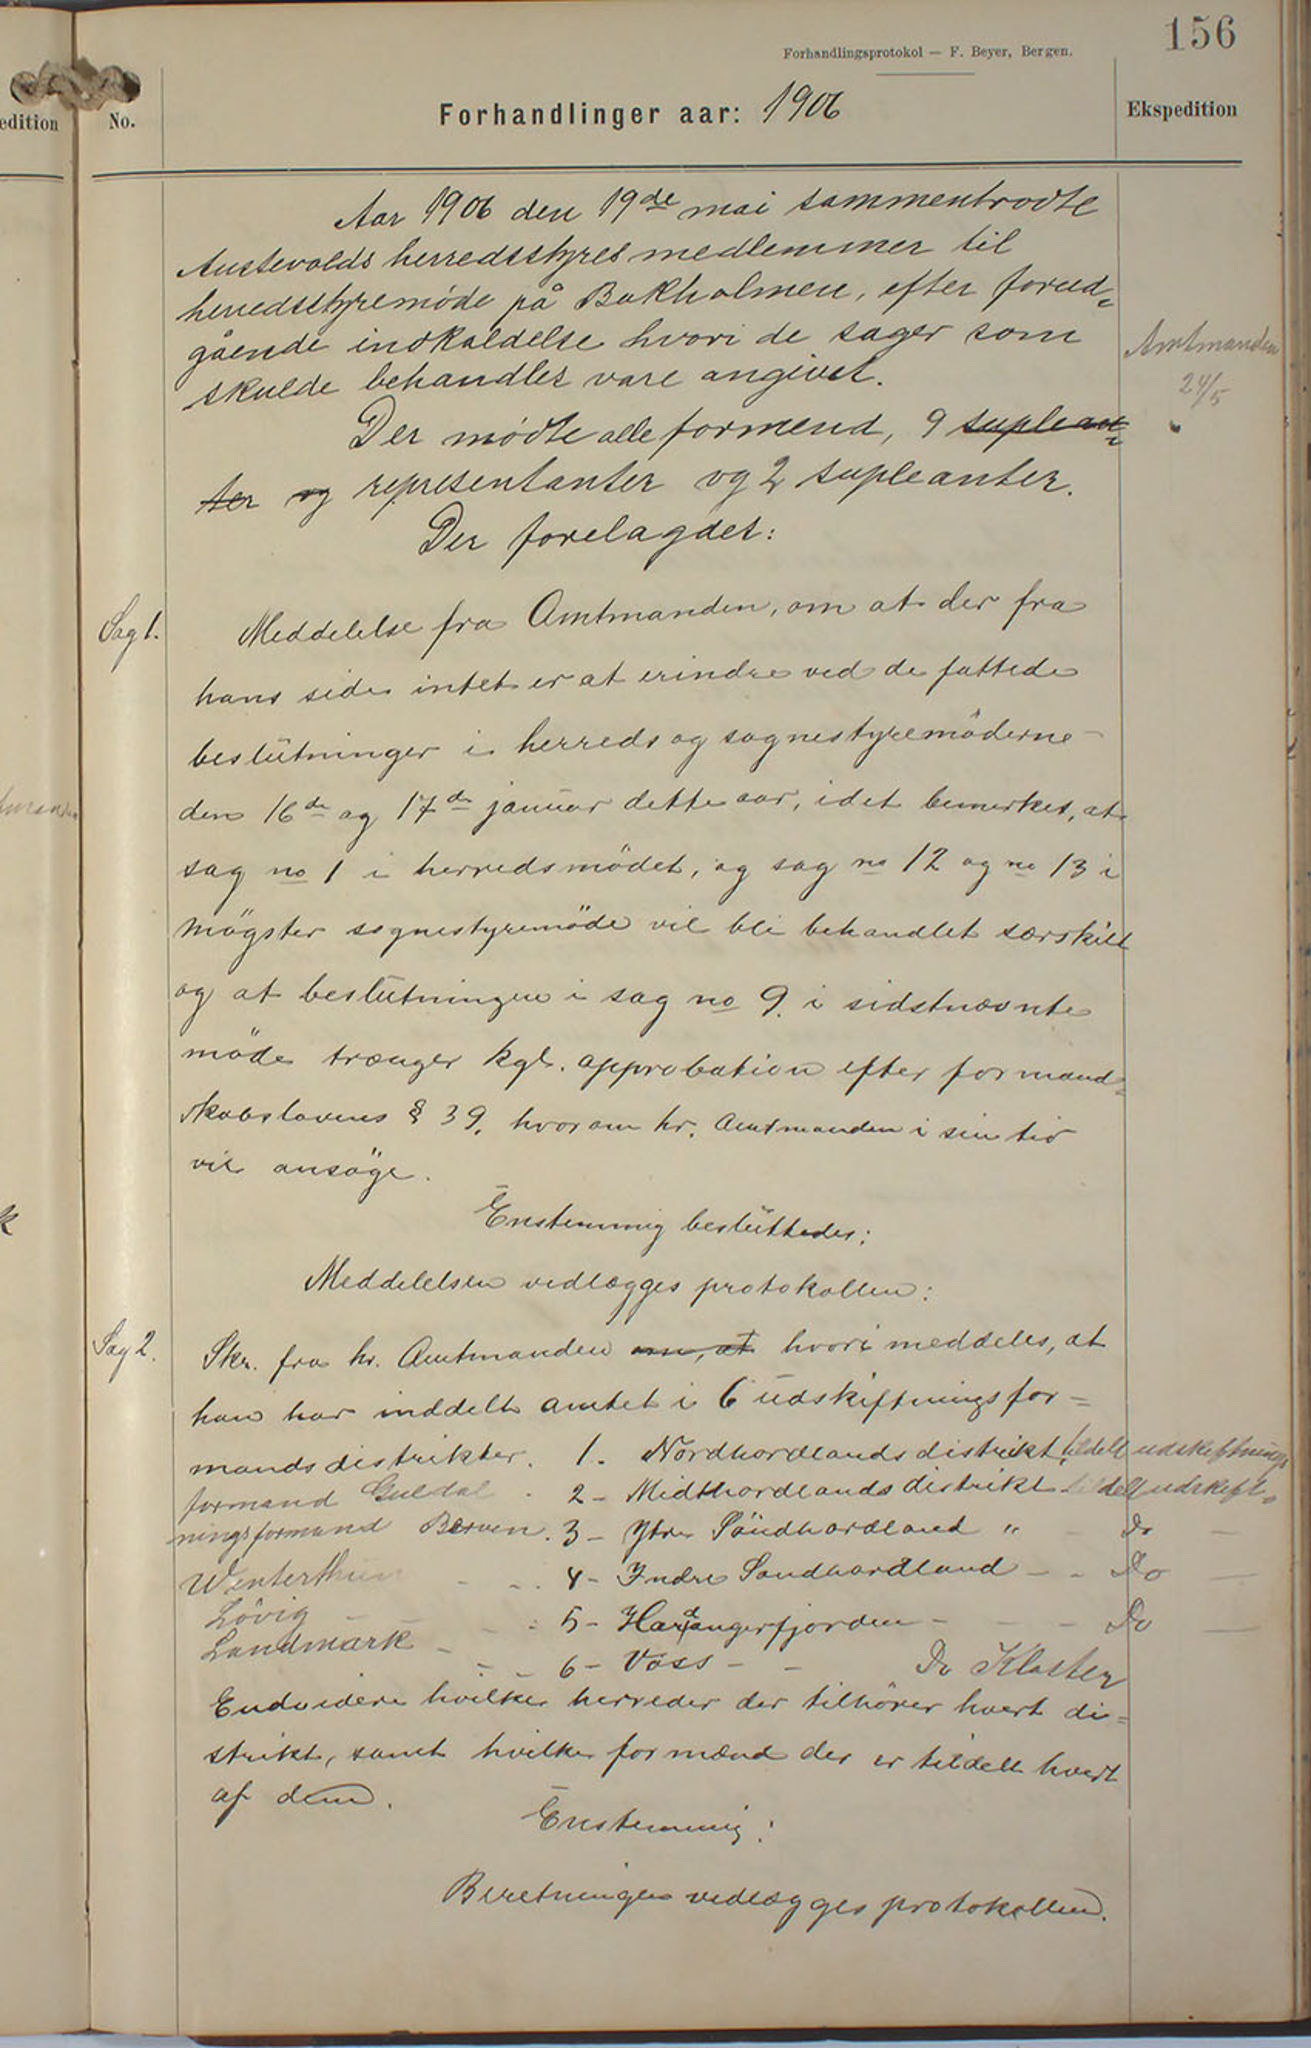 156
Forhandlingsprotokol — F. Beyer, Bergen.
edition
No.
Forhandlinger aar: 1906
Ekspedition
Aar 1906 den 19de mai sammentrodte
Austevolds herredsstyres medlemmer til
herredsstyremöde på Bakholmen, efter forud-
gående indkaldelse hvori de sager som
skulde behandles vare angivet.
Amtmanden
24/5
Der mödte alle formend, 9 suplean-
ter og representanter og 2 supleanter.
Der forelagdes:
Sag 1.
Meddelelse fra Amtmanden, om at der fra
hans side intet er at erindre ved de fattede
beslutninger i herreds og sognestyremöderne
den 16de og 17de januar dette aar, idet bemerkes, at
sag no 1 i herredsmödet, og sag no 12 og no 13 i
Mögster sognestyremöde vil bli behandlet særskilt
og at beslutningen i sag no 9. i sidstnævnte
möde trænger kgl. approbation efter formand-
skabslovens § 39, hvorom hr. Amtmanden i sin tid
vil ansöge.
Enstemmig besluttedes:
Meddelelsen vedlægges protokollen:
Sag 2.
Skr. fra hr. Amtmanden om, at hvori meddeles, at
han har inddelt amtet i 6 udskiftningsfor=
mandsdistrikter. 1. Nordhordlands distrikt, tildelt udskiftnings
formand Guldal. 2 - Midthordlands distrikt tildelt udskift-
ningsformand Berven. 3 - Ytre Söndhordland " - Do -
Winterthun - - . 4 - Indre Sondhordland - - Do -
Lövig - - : 5 - Hardangerfjorden - - - Do -
Landmark - - - 6 - Voss - - Do Kloster
Endvidere hvilke herreder der tilhörer hvert di=
strikt, samt hvilke formænd der er tildelt hvert
af dem.
Enstemmig:
Beretningen vedlægges protokollen.